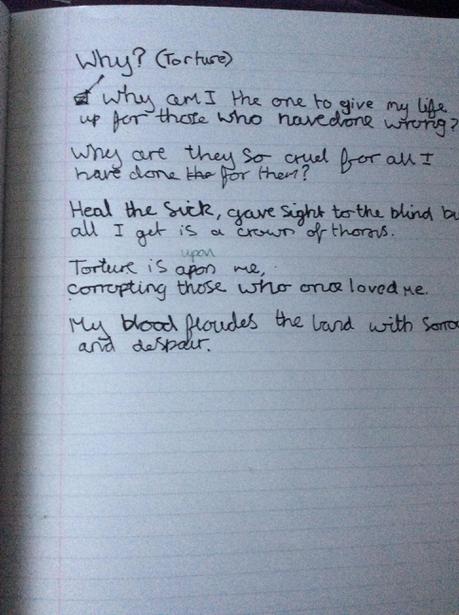 Why? (Torture)
Why am I the one to give my life
up for those who have done wrong?
Why are they so cruel for all I
have done the for them?
Heal the sick, gave sight to the blind bu
all I get is a crown of thorns.
upon
Torture is apon me,
corropting those who once loved me.
My blood floudes the land with sorro
and despair.